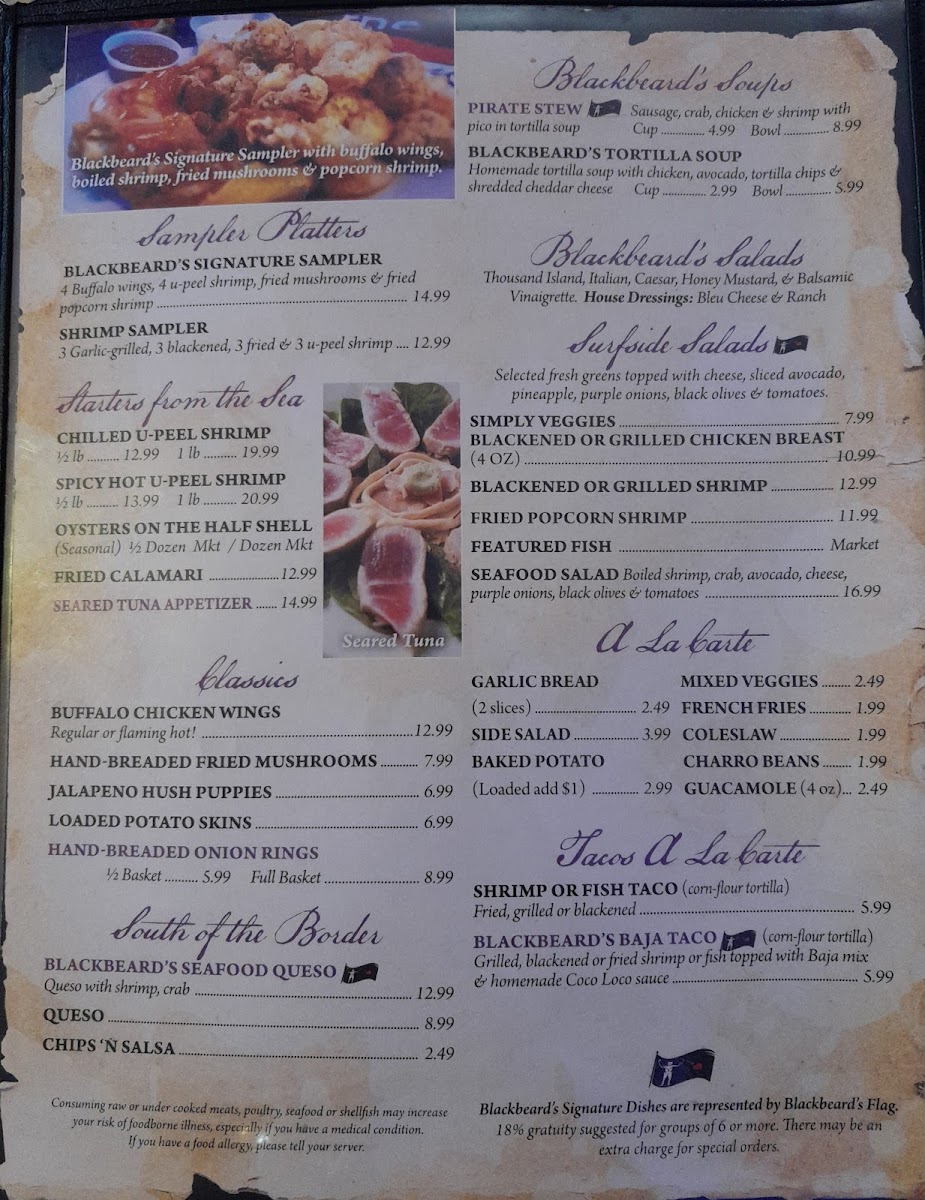 Blackbeard's Signature Sampler with buffalo wings,
boiled shrimp, fried mushrooms & popcorn shrimp.
Sampler Platters
BLACKBEARD'S SIGNATURE SAMPLER
4 Buffalo wings, 4 u-peel shrimp, fried mushrooms & fried
popcorn shrimp ........ 14.99
SHRIMP SAMPLER
3 Garlic-grilled, 3 blackened, 3 fried & 3 u-peel shrimp .... 12.99
Starters from the Sea
CHILLED U-PEEL SHRIMP
½ lb ......... 12.99 1 lb .......... 19.99
SPICY HOT U-PEEL SHRIMP
½ lb ......... 13.99 1 lb .......... 20.99
OYSTERS ON THE HALF SHELL
(Seasonal) ½ Dozen Mkt / Dozen Mkt
FRIED CALAMARI ........ 12.99
SEARED TUNA APPETIZER ....... 14.99
Seared Tuna
Classics
BUFFALO CHICKEN WINGS
Regular or flaming hot! ........ 12.99
HAND-BREADED FRIED MUSHROOMS .......... 7.99
JALAPENO HUSH PUPPIES ........ 6.99
LOADED POTATO SKINS ........ 6.99
HAND-BREADED ONION RINGS
½ Basket .......... 5.99 Full Basket ........ 8.99
South of the Border
BLACKBEARD'S SEAFOOD QUESO
Queso with shrimp, crab ........ 12.99
QUESO ........ 8.99
CHIPS 'N SALSA ........ 2.49
Consuming raw or under cooked meats, poultry, seafood or shellfish may increase
your risk of foodborne illness, especially if you have a medical condition.
If you have a food allergy, please tell your server.
Blackbeard's Soups
PIRATE STEW Sausage, crab, chicken & shrimp with
pico in tortilla soup Cup ........ 4.99 Bowl ........ 8.99
BLACKBEARD'S TORTILLA SOUP
Homemade tortilla soup with chicken, avocado, tortilla chips &
shredded cheddar cheese Cup ........ 2.99 Bowl ........ 5.99
Blackbeard's Salads
Thousand Island, Italian, Caesar, Honey Mustard, & Balsamic
Vinaigrette. House Dressings: Bleu Cheese & Ranch
Surfside Salads
Selected fresh greens topped with cheese, sliced avocado,
pineapple, purple onions, black olives & tomatoes.
SIMPLY VEGGIES ........ 7.99
BLACKENED OR GRILLED CHICKEN BREAST
(4 OZ) ........ 10.99
BLACKENED OR GRILLED SHRIMP ........ 12.99
FRIED POPCORN SHRIMP ........ 11.99
FEATURED FISH ........ Market
SEAFOOD SALAD Boiled shrimp, crab, avocado, cheese,
purple onions, black olives & tomatoes ........ 16.99
A La Carte
GARLIC BREAD
(2 slices) ........ 2.49
SIDE SALAD ........ 3.99
BAKED POTATO
(Loaded add $1) ........ 2.99
MIXED VEGGIES ........ 2.49
FRENCH FRIES ........ 1.99
COLESLAW ........ 1.99
CHARRO BEANS ........ 1.99
GUACAMOLE (4 oz)... 2.49
Tacos A La Carte
SHRIMP OR FISH TACO (corn-flour tortilla)
Fried, grilled or blackened ........ 5.99
BLACKBEARD'S BAJA TACO (corn-flour tortilla)
Grilled, blackened or fried shrimp or fish topped with Baja mix
& homemade Coco Loco sauce ........ 5.99
Blackbeard's Signature Dishes are represented by Blackbeard's Flag.
18% gratuity suggested for groups of 6 or more. There may be an
extra charge for special orders.